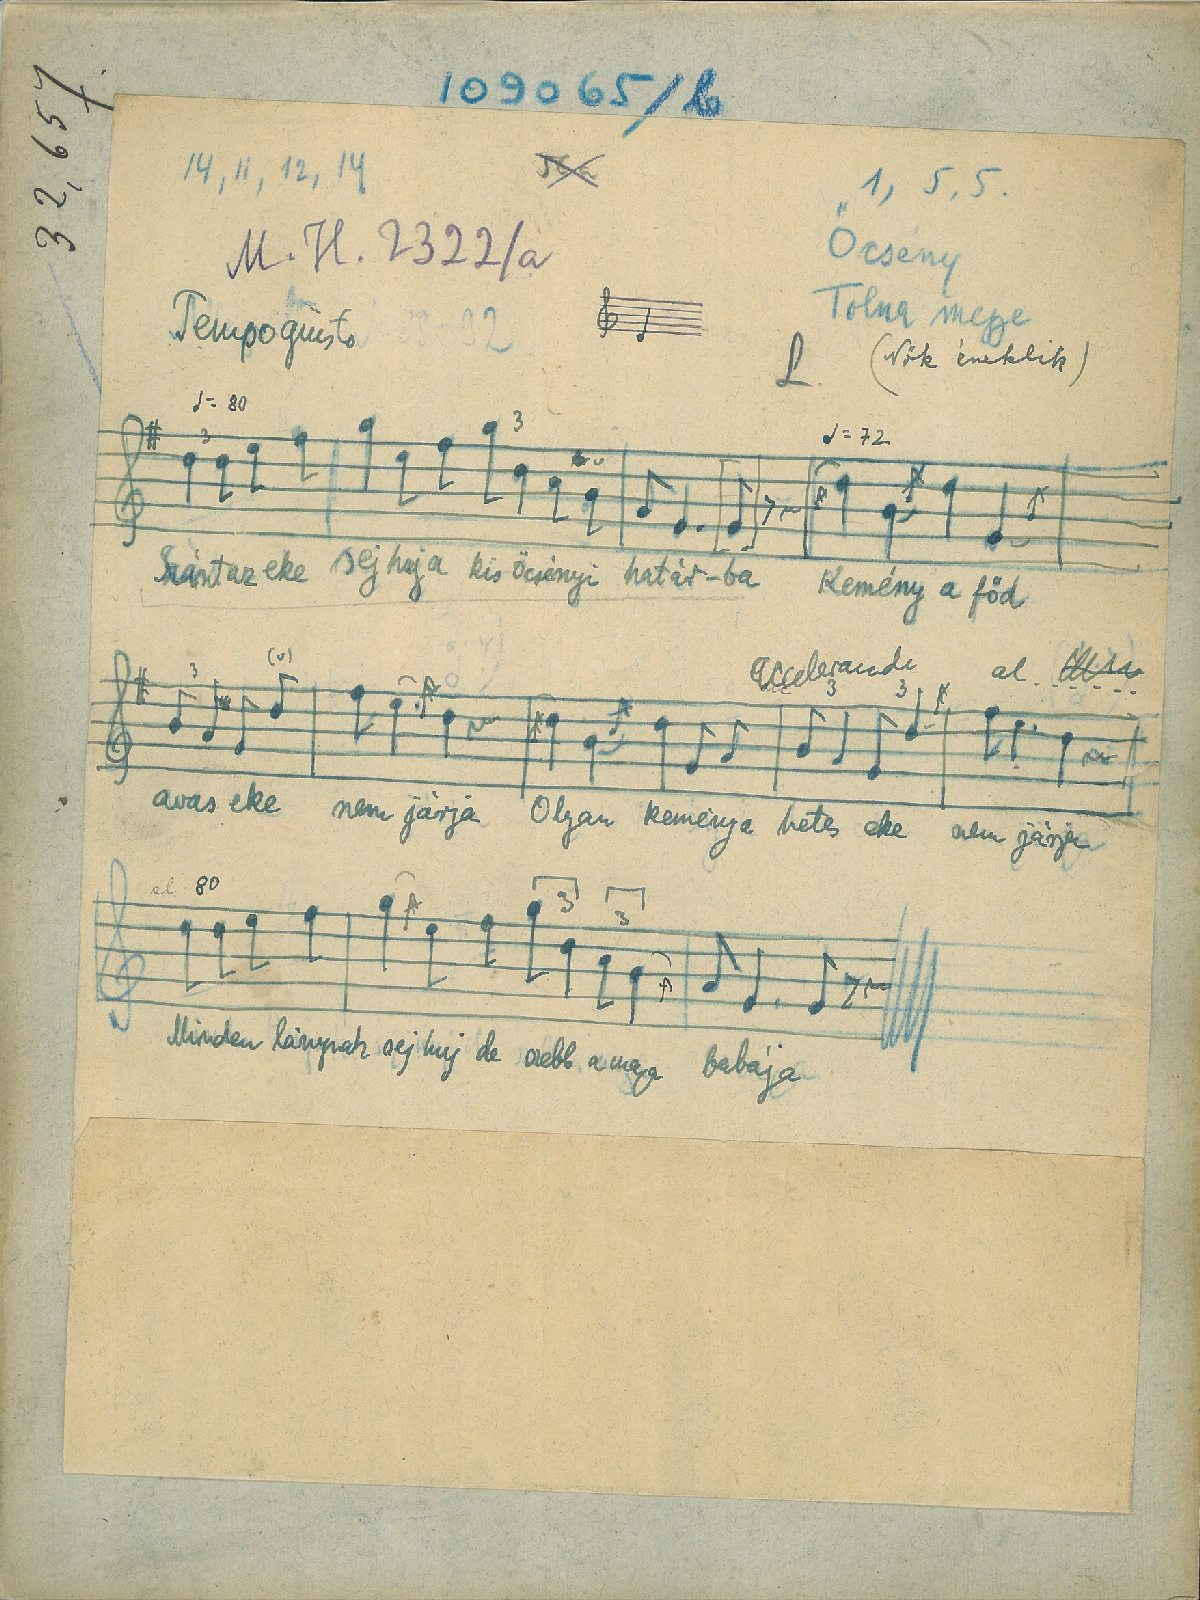 32,657.
109065/b
14, 11, 12, 14
1, 5, 5.
M.H. 2322/a
Őcsény
Tolna megye
Tempo giusto
L.
(Nők éneklik)
♩= 80
3
3
♩= 72
Szántaz eke sej huja kis őcsényi határ-ba Kemény a főd
3
(v)
accelerando al
3
3
avas eke nem járja Olyan keménya hetes eke nem járja
al 80
3
3
Minden lánynak sej huj de szebb a maga babája